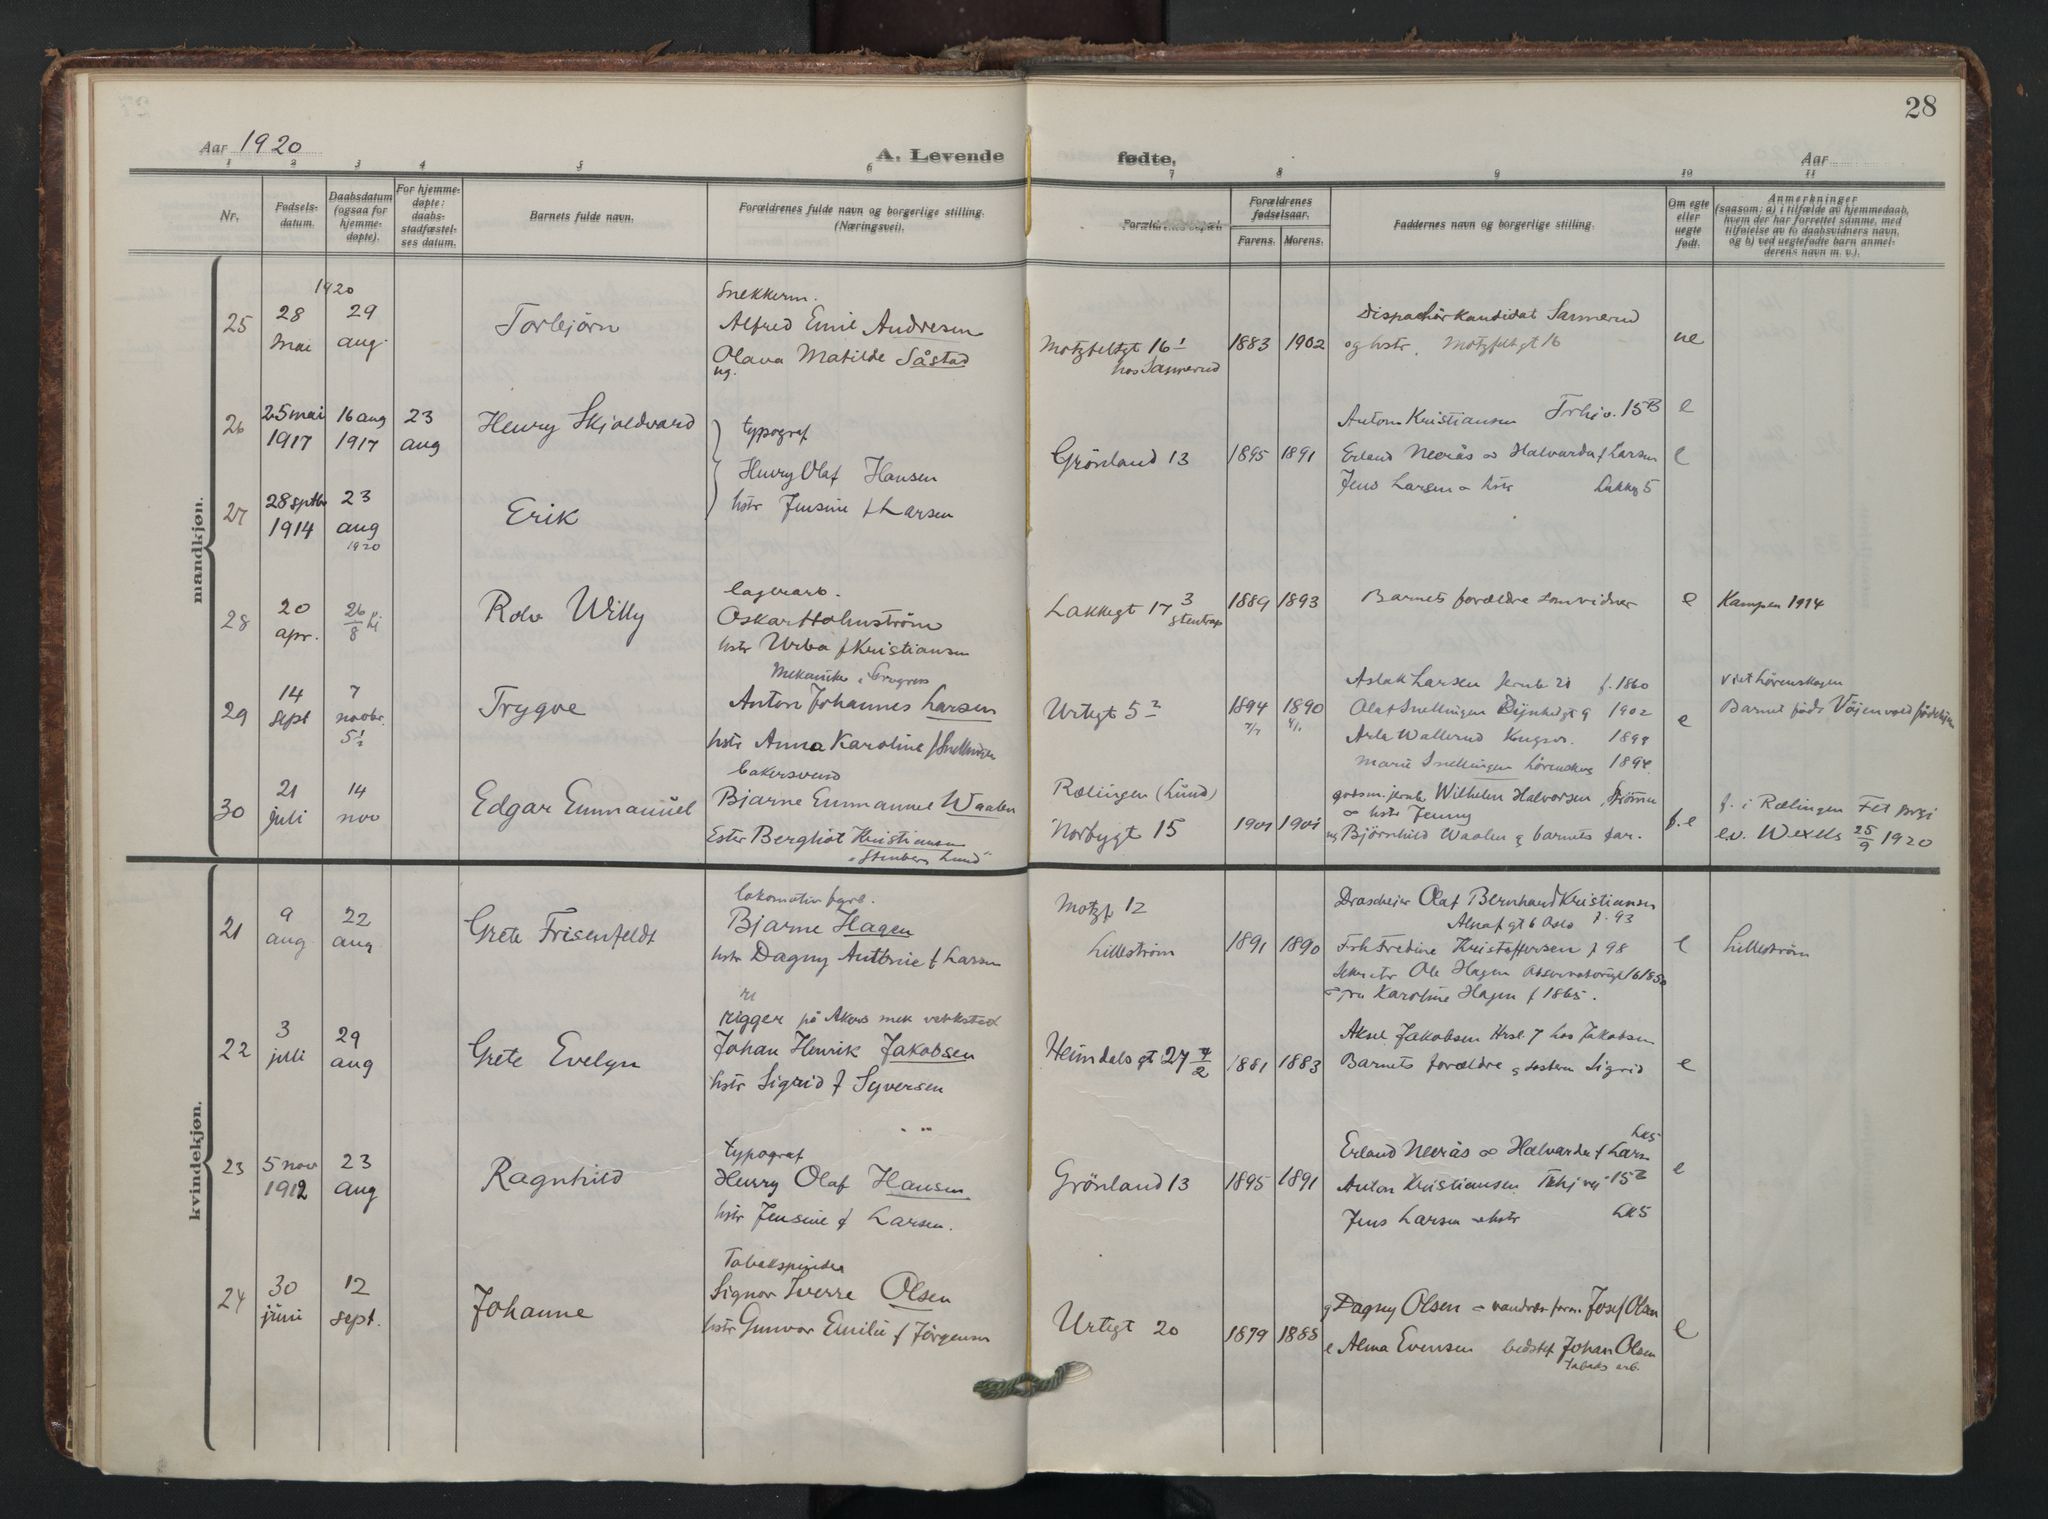 28
Aar 1920
A. Levende fødte.
Aar
1 2 3 4 5 6 7 8 9 10 11
Nr.
Fødsels-
datum.
Daabsdatum
(ogsaa for
hjemme-
døpte).
For hjemme-
døpte:
daabs-
stadfæstel-
ses datum.
Barnets fulde navn.
Forældrenes fulde navn og borgerlige stilling.
(Næringsvei).
Forældrenes
fødselsaar.
Farens. Morens.
Faddernes navn og borgerlige stilling.
Om egte
eller
uegte
født.
Anmerkninger
(saasom: a) i tilfælde av hjemmedaab,
hvem der har forrettet samme, med
tilføielse av to daabsvidners navn,
og b) ved uegtefødte barn anmel-
derens navn m. v.).
mandkjøn.
1920
25
28
mai
29
aug.
Torbjørn
Snekkerm.
Alfred Emil Andresen
Olava Matilde Såstad
ug.
Motzfeltgt 16
hos Sannerud
1883 1902
Dispachørkandidat Sannerud
og hstr. Motzfeltgt 16
ue
26
25 mai
1917
16 aug
1917
23
aug
Henry Skjoldvard
typograf
Henry Olaf Hansen
hstr Jensine f Larsen
Grönland 13
1895 1891
Anton Kristiansen 15B
Erland Nerås Halvarda f Larsen
Jens Larsen hstr Lakkg 5
e
e
27
28 septbr
1914
23
aug
1920
Erik
28
20
apr.
26/8 hj
Rolv Willy
lagerarb.
Oskar Holmström
hstr Urba f Kristiansen
Lakkegt 17 3
1889 1893
Barnets forældre som vidner
e
Kampen 1914
29
14
sept
7
novbr.
5½
Trygve
Mekaniker
Anton Johannes Larsen
hstr Anna Karoline f Snellingen
Urtegt 5 2
1894 1890
Aslak Larsen f. 1860
Olaf Snellingen 1902
Arla Wallerud Kongsv. 1899
Marie Snellingen Lørenskog 1894
e
viet Lørenskogen
Barnet føds
30
21
juli
14
nov
Edgar Emmanuel
bakersvend
Bjarne Emmanuel Waalen
Ester Bergliot Kristiansen
Rælingen (Lund)
Norbygt 15
1901 1901
Wilhelm Halvorsen, Strømm
hstr Jenny
Björnhild Waalen barnets far.
f. e
f. i Rælingen Fet prgj
e.v. Wexels 25/9 1920
kvindekjøn.
21
9
aug
22
aug
Grete Frisenfeldt
lokomotiv fyrb.
Bjarne Hagen
hstr Dagny Antonie f Larsen
Motzf 12
Lilleström
1891 1890
Olaf Bernhard Kristiansen
gt 6 Oslo f. 93
Frk Fredine Kristoffersen f 98
Ole Hagen 1850
fru Karoline Hagen f 1865.
e
Lilleström
22
3
juli
29
aug
Grete Evelyn
rigger på Akers mek verksted
Johan Henrik Jakobsen
hstr Sigrid f Syversen
Heimdalsgt 27
1881 1883
Aksel Jakobsen 7 hos Jakobsen
Barnets forældre g søstern Sigrid
e
23
5 nov
1912
23
aug
Ragnhild
typograf
Henry Olaf Hansen
hstr Jensine f Larsen.
Grönland 13
1895 1891
Erland Nerås Halvarda f Larsn
Anton Kristiansen 15B
Jens Larsen hstr LK5
e
24
30
juni
12
sept.
Johanne
Tabakspinder
Signor Sverre Olsen
hstr Gunvor Emilie f Jörgensen
Urtegt 20
1879 1885
g Dagny Olsen Josef Olsen
e Alma Evensen bedstef Johan Olsen
tabaks arb.
e